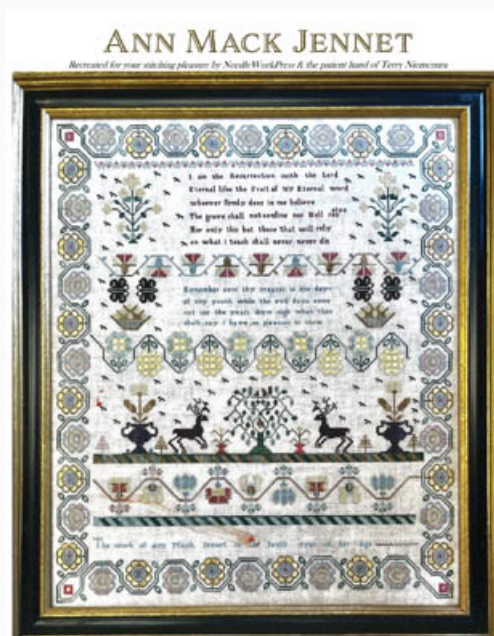 ANN MACK JENNET
Recreated for your stitching pleasure by NeedleWorkPress & the patient hand of Terry
I am the Resurrection saith the Lord
Eternal life the Fruit of my Eternal word
whoever firmly does in me believe
The grave shall not confine nor Hell
Nor only this but those that will rely
on what I teach shall never never die
Remember now thy creator in the days
of thy youth while the evil days come
not nor the years draw nigh when thou
shalt say I have no pleasure in them
The work of Ann Mack Jennet in the tenth year of her age